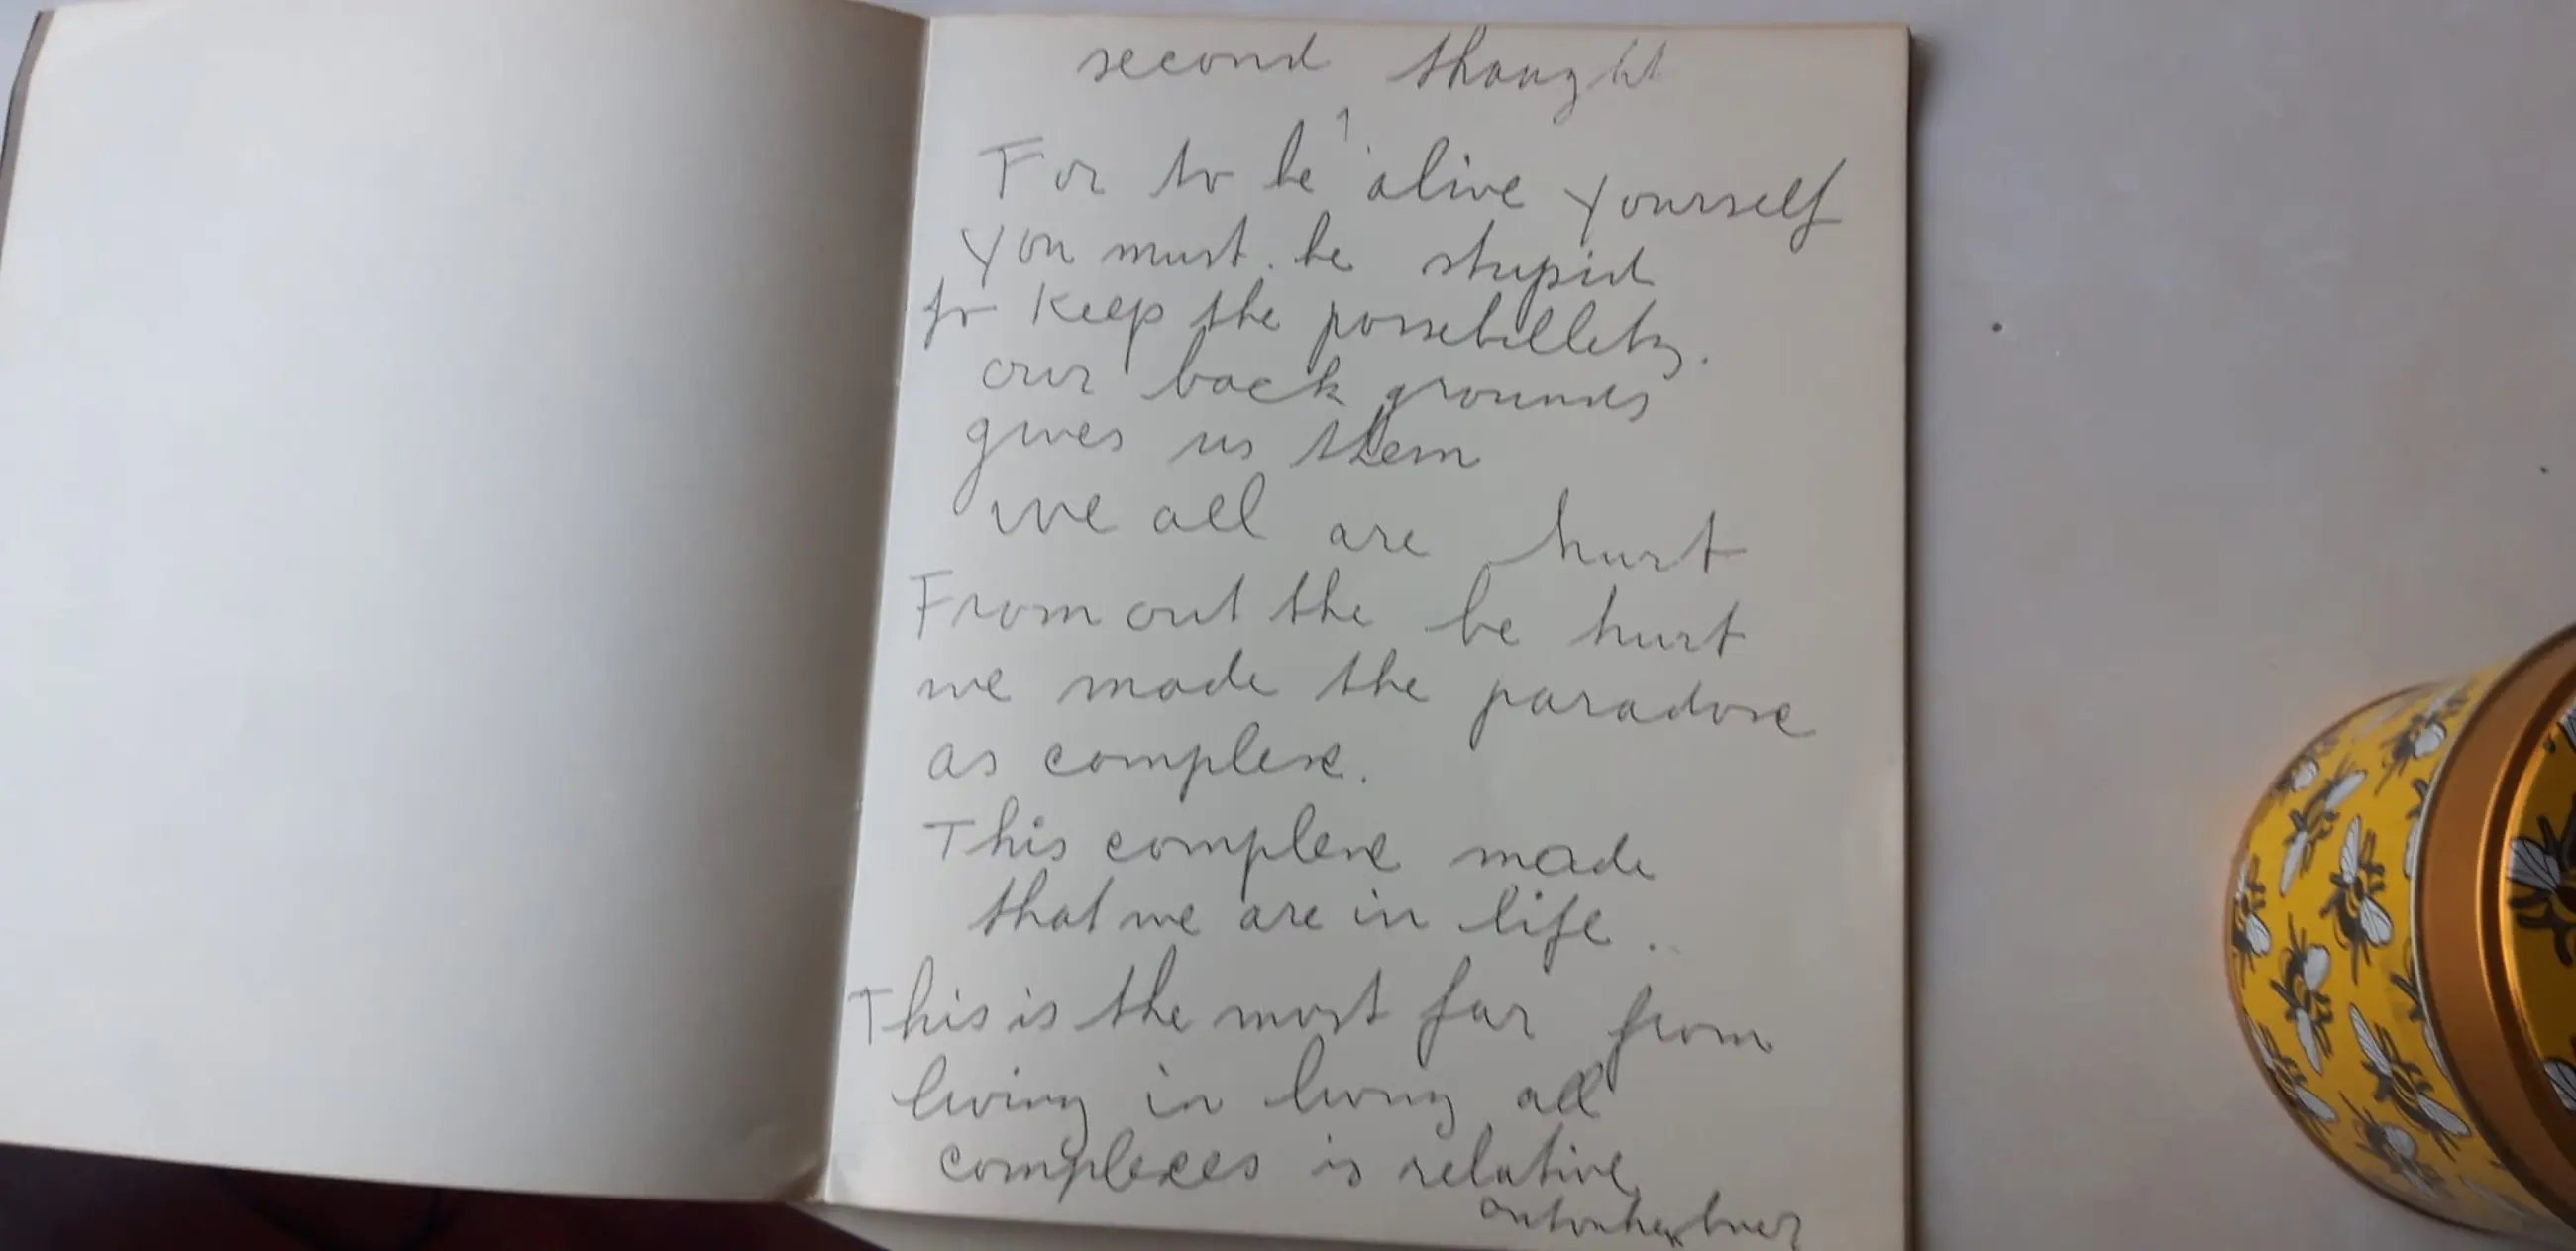 second thought
For to be alive yourself
you must be stupid
to keep the possebillety.
our back grounds
gives us them
we all are hurt
From out the be hurt
we made the paradoxe
as complexe.
This complexe made
that we are in life.
This is the most far from
living in living all
complexes is relative